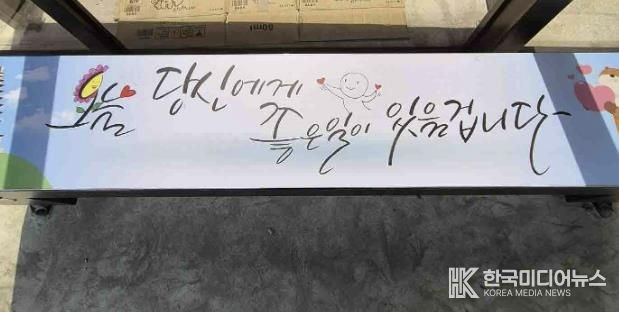 오늘 당신에게
좋은일이 있을겁니다
HK 한국미디어뉴스
KOREA MEDIA NEWS